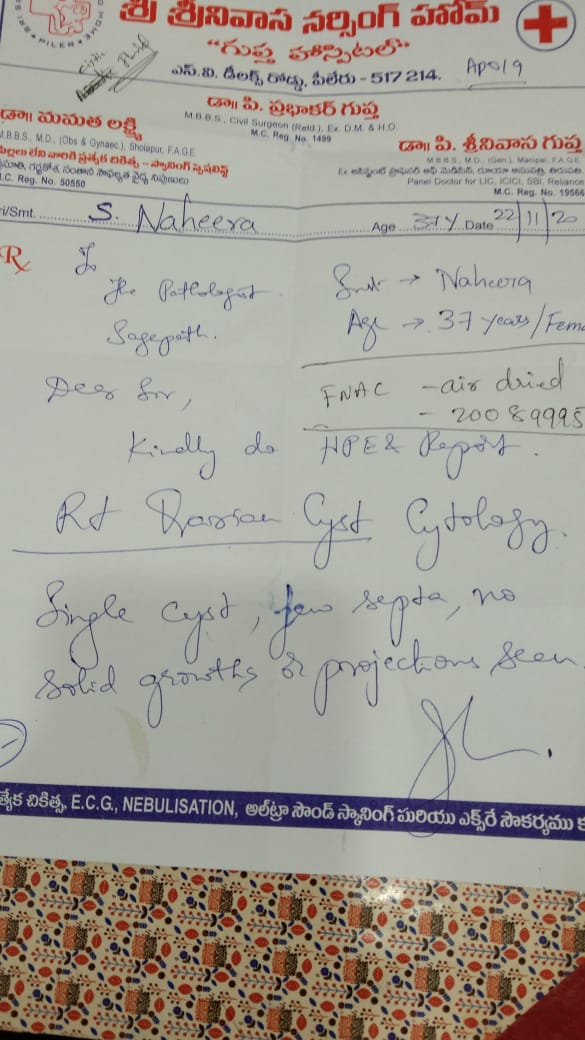 శ్రీ శ్రీనివాస నర్సింగ్ హోమ్
"గుప్త హాస్పిటల్"
ఎస్.వి. డీలక్స్ రోడ్డు, పీలేరు - 517 214.
PILER
డా॥ పి. ప్రభాకర్ గుప్త
M.B.B.S., Civil Surgeon (Retd.), Ex. D.M. & H.O.
M.C. Reg. No. 1499
డా॥ మమత లక్ష్మి
M.B.B.S., M.D., (Obs & Gynaec.), Sholapur, F.A.G.E.
పిల్లలు లేని వారికి ప్రత్యేక చికిత్స - స్కానింగ్ స్పెషలిస్ట్
M.C. Reg. No. 50550
డా॥ పి. శ్రీనివాస గుప్త
M.B.B.S., M.D., (Gen.), Manipal, F.A.G.E.
Ex. అసిస్టెంట్ ప్రొఫెసర్ ఆఫ్ మెడిసిన్, రుయా ఆసుపత్రి, తిరుపతి.
Panel Doctor for LIC, ICICI, SBI, Reliance
M.C. Reg. No. 19566
ri/Smt. S. Naheera Age 37y Date 22/11/20
Rx To
The Pathologist
Sagepath.
Smt → Naheera
Age → 37 years/Fema
FNAC - air dried
- 20089995
Dear Sir,
Kindly do HPE & Report.
Rt Ovarian Cyst Cytology.
Single cyst, few septa, no
solid growths or projections seen.
త్యేక చికిత్స, E.C.G., NEBULISATION, అల్ట్రా సౌండ్ స్కానింగ్ మరియు ఎక్స్‌రే సౌకర్యము క